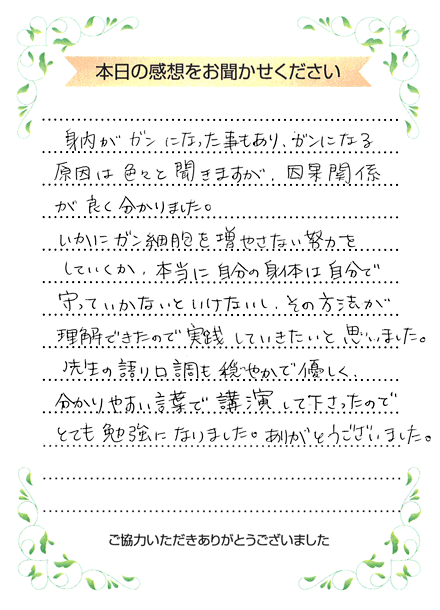 本日の感想をお聞かせください
身内がガンになった事もあり、ガンになる
原因は色々と聞きますが、因果関係
が良く分かりました。
いかにガン細胞を増やさない努力を
していくか、本当に自分の身体は自分で
守っていかないといけないし、その方法が
理解できたので実践していきたいと思いました。
先生の語り口調も穏やかで優しく、
分かりやすい言葉で講演して下さったので
とても勉強になりました。ありがとうございました。
ご協力いただきありがとうございました